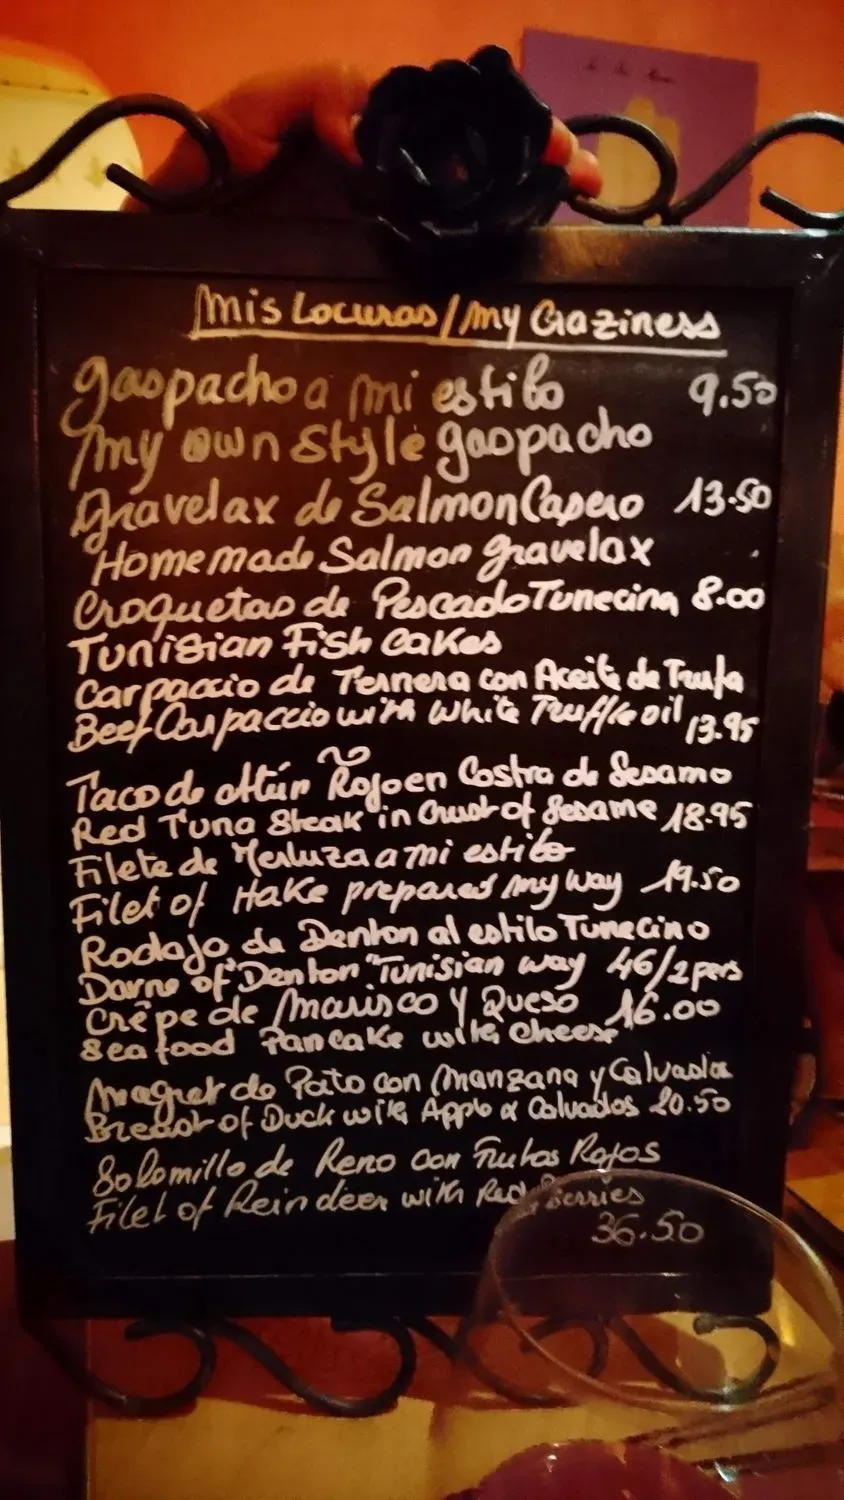 Mis Locuras/My Craziness
gaspacho a mi estilo 9.50
My own Style gaspacho
Gravelax de Salmon Casero 13.50
Homemade Salmon gravelax
Croquetas de Pescado Tunecina 8.00
Tunisian Fish Cakes
Carpaccio de Ternera con Aceite de Trufa
Beef Carpaccio with White Truffle oil 13.95
Taco de Atún Rojo en Costra de Sesamo
Red Tuna Steak in Crust of Sesame 18.95
Filete de Merluza a mi estilo
Filet of Hake prepared my way 19.50
Rodaja de Denton al estilo Tunecino
Darne of Denton Tunisian way 46/2 pers
Crêpe de Marisco y Queso 16.00
Sea food Pancake with cheese
Magret de Pato con Manzana y Calvados
Breast of Duck with Apple & Calvados 20.50
Solomillo de Reno con Frutas Rojos
Filet of Reindeer with Red Berries
36.50